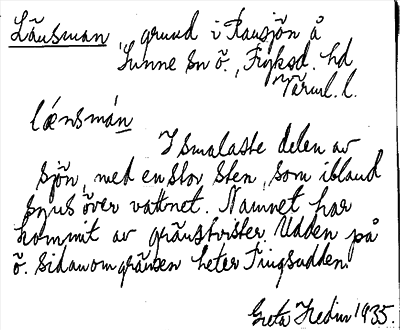 Länsman, grund i Ransjön å
Sunne sn ö., Fryksd. hd
Värml. l.
lǽnsmán
I smalaste delen av
sjön, med en stor sten, som ibland
syns över vattnet. Namnet har
kommit av gränstvister Udden på
ö. sidan om gränsen heter Tingsudden.
Greta Hedin 1935.